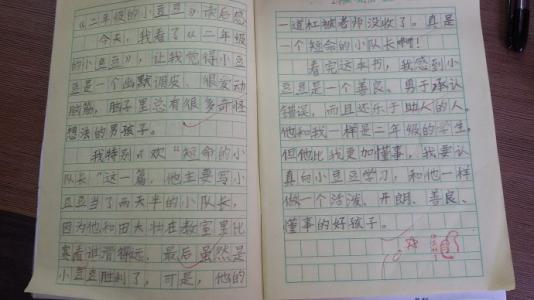 《二年级的小豆豆》读后感
今天，我看了《二年级
的小豆豆》，让我觉得小豆
豆是一个幽默调皮、很爱动
脑筋，脑子里总有很多奇怪
想法的男孩子。
我特别欢“短命的小
队长”这一篇，他主要写小
豆豆当了两天半的小队长，
因为他和田大壮在教室里比
赛看谁滑得远，最后虽然是
小豆豆胜利了，可是，他的
一道杠被老师没收了。真是
一个短命的小队长啊！
看完这本书，我感到小
豆豆是一个善良、勇于承认
错误，而且还乐于助人的人。
他和我一样是二年级的学生，
但他比我更加懂事，我要认
真向小豆豆学习，和他一样
做一个活泼、开朗、善良、
懂事的好孩子。